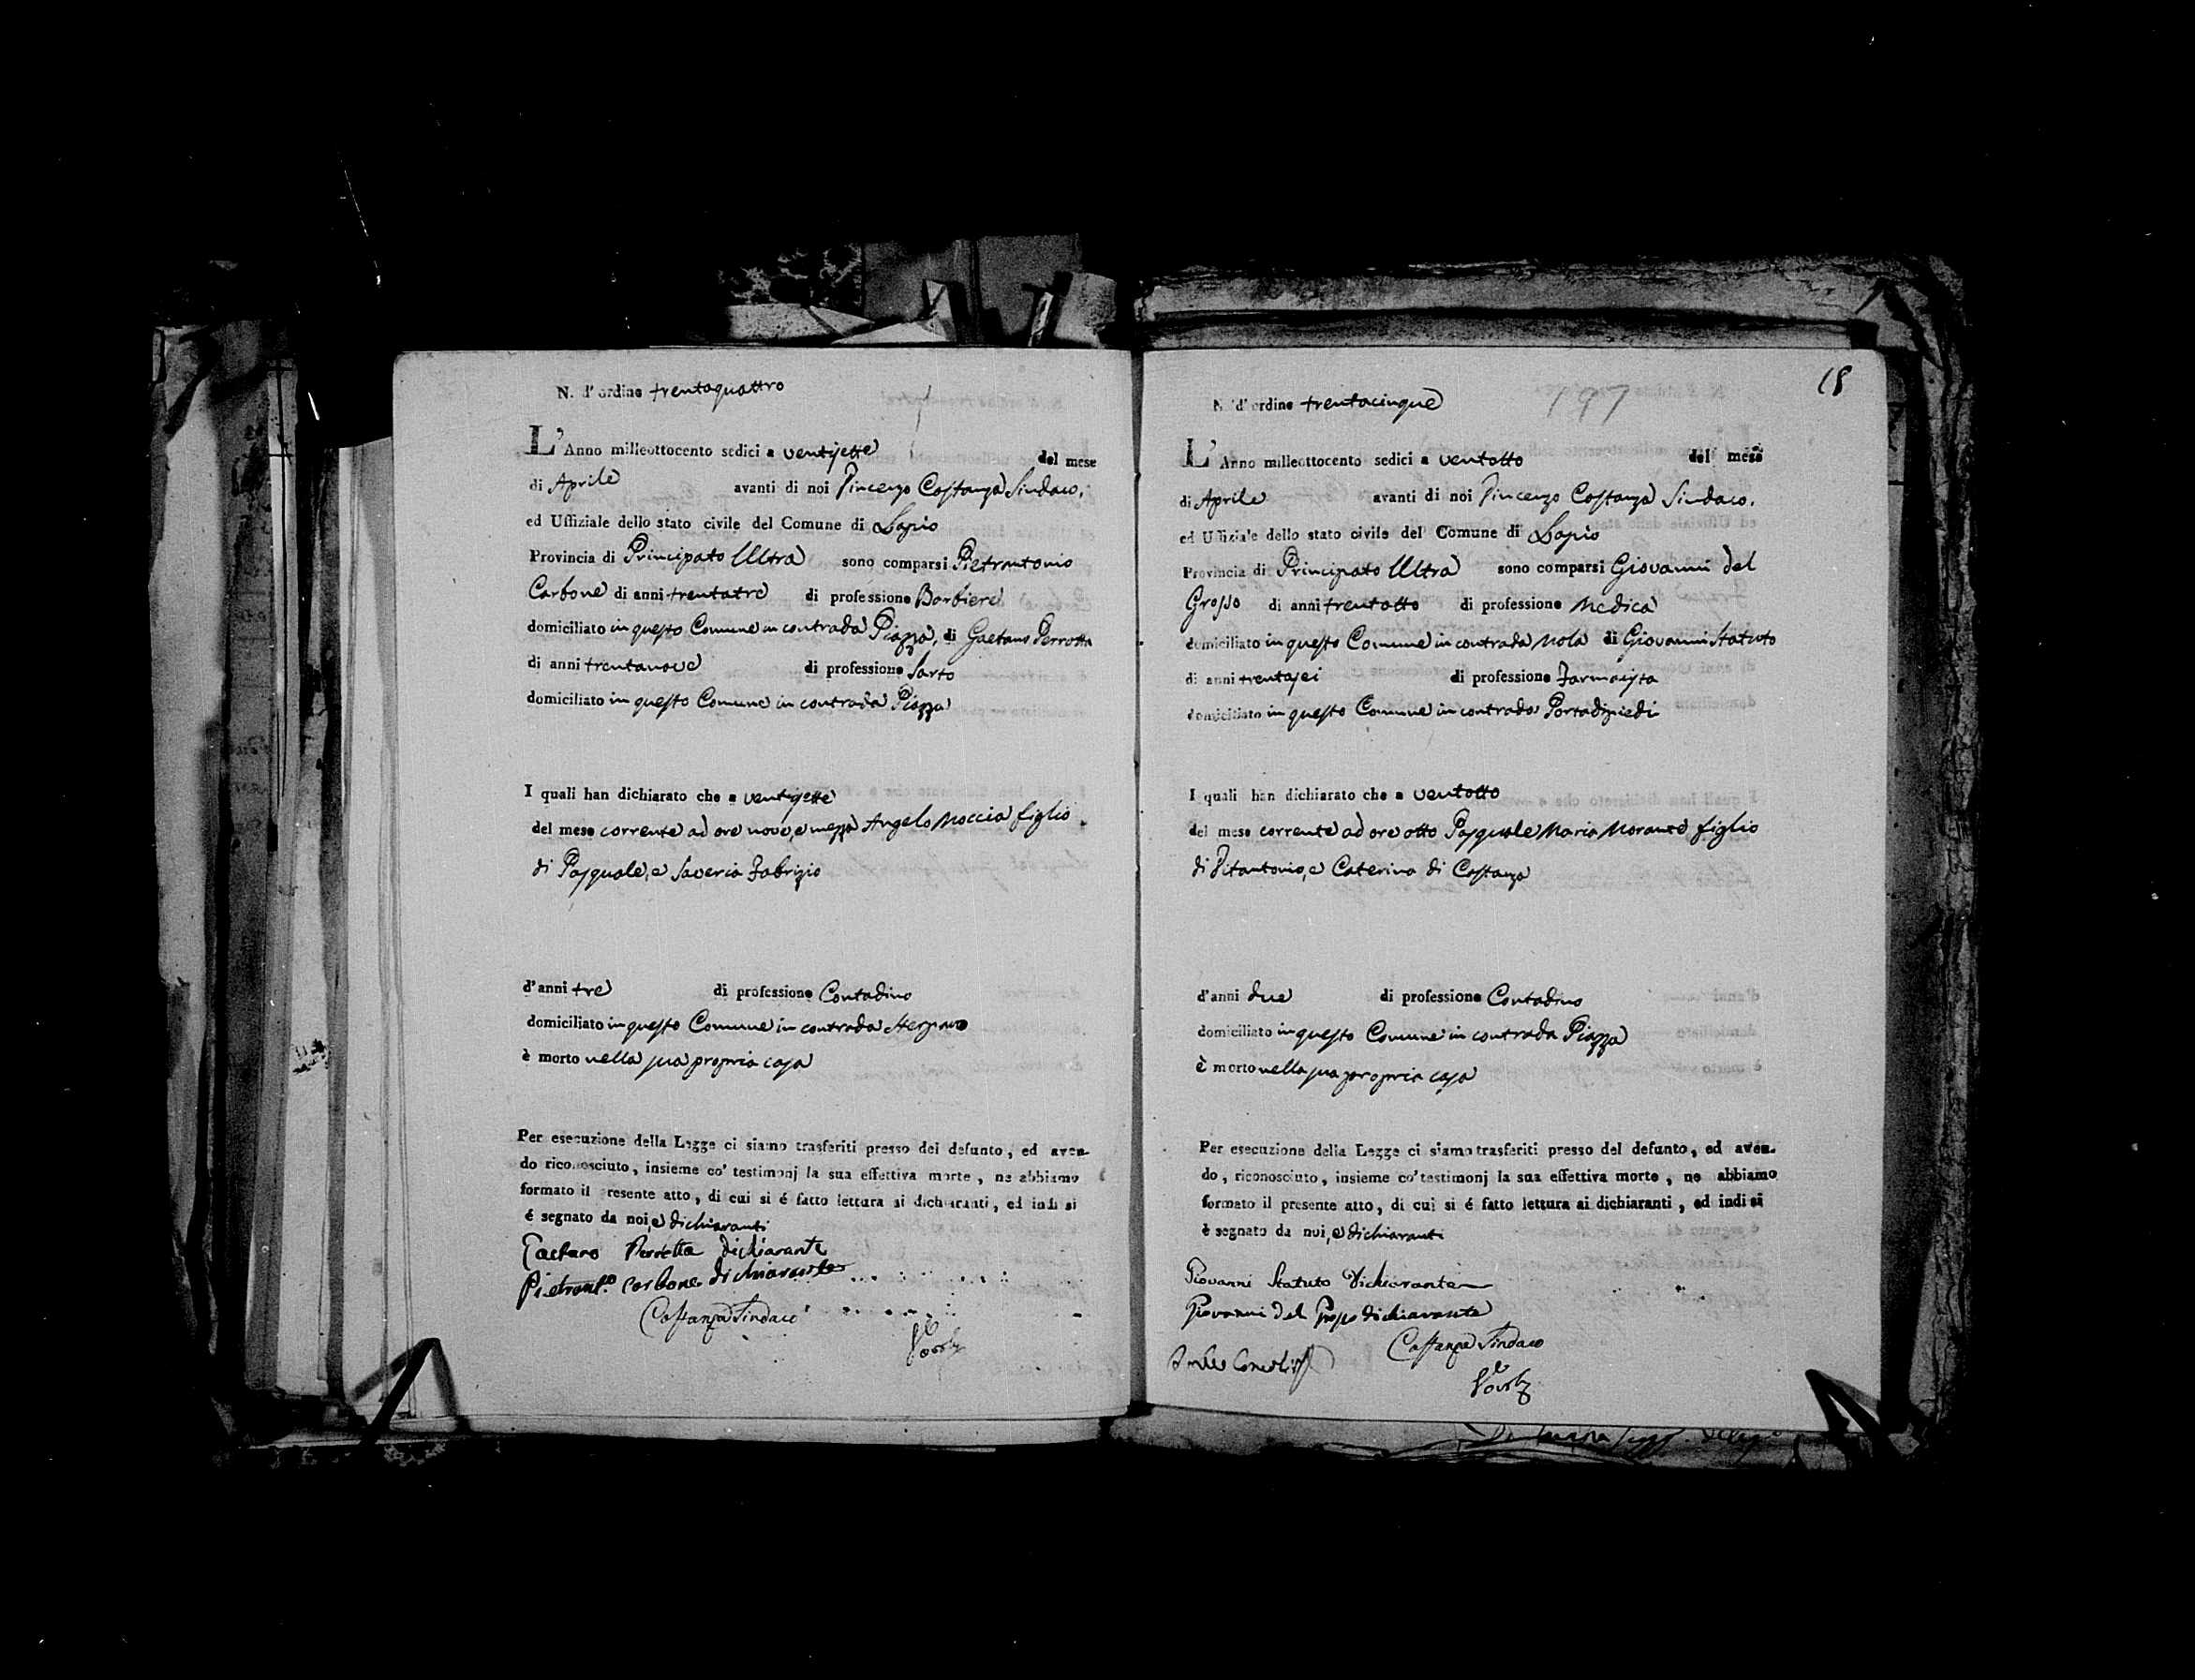 N. d'ordine trentaquattro
L'Anno milleottocento sedici a ventisette del mese
di Aprile avanti di noi Vincenzo Costanza Sindaco,
ed Uffiziale dello stato civile del Comune di Lapio
Provincia di Principato Ultra sono comparsi Pietrantonio
Carbone di anni trentatre di professione Barbiere
domiciliato in questo Comune in contrada Piazza, di Gaetano Perrotta
di anni trentanove di professione Sarto
domiciliato in questo Comune in contrada Piazza
I quali han dichiarato che a ventisette
del mese corrente ad ore nove, e mezza Angelo Moccia figlio
di Pasquale, e Saveria Fabrizio
d'anni tre di professione Contadino
domiciliato in questo Comune in contrada
è morto nella sua propria casa
Per esecuzione della Legge ci siamo trasferiti presso del defunto, ed aven-
do riconosciuto, insieme co' testimonj la sua effettiva morte, ne abbiamo
formato il presente atto, di cui si é fatto lettura ai dichiaranti, ed indi si
é segnato da noi, e dichiaranti
Gaetano Perrotta dichiarante
Pietrant.º Carbone dichiarante
Costanza Sindaco
18
197
N. d'ordine trentacinque
L'Anno milleottocento sedici a ventotto del mese
di Aprile avanti di noi Vincenzo Costanza Sindaco,
ed Uffiziale dello stato civile del Comune di Lapio
Provincia di Principato Ultra sono comparsi Giovanni del
Grosso di anni trentotto di professione Medico
domiciliato in questo Comune in contrada Mola di Giovanni Statuto
di anni trentasei di professione Farmacista
domiciliato in questo Comune in contrada Portadipiedi
I quali han dichiarato che a ventotto
del mese corrente ad ore otto Pasquale Maria Morante figlio
di Vitantonio, e Caterina di Costanza
d'anni due di professione Contadino
domiciliato in questo Comune in contrada Piazza
è morto nella sua propria casa
Per esecuzione della Legge ci siamo trasferiti presso del defunto, ed aven-
do, riconosciuto, insieme co' testimonj la sua effettiva morte, ne abbiamo
formato il presente atto, di cui si é fatto lettura ai dichiaranti, ed indi si
è segnato da noi, e dichiaranti
Giovanni Statuto Dichiarante
Giovanni del Grosso dichiarante
Costanza Sindaco